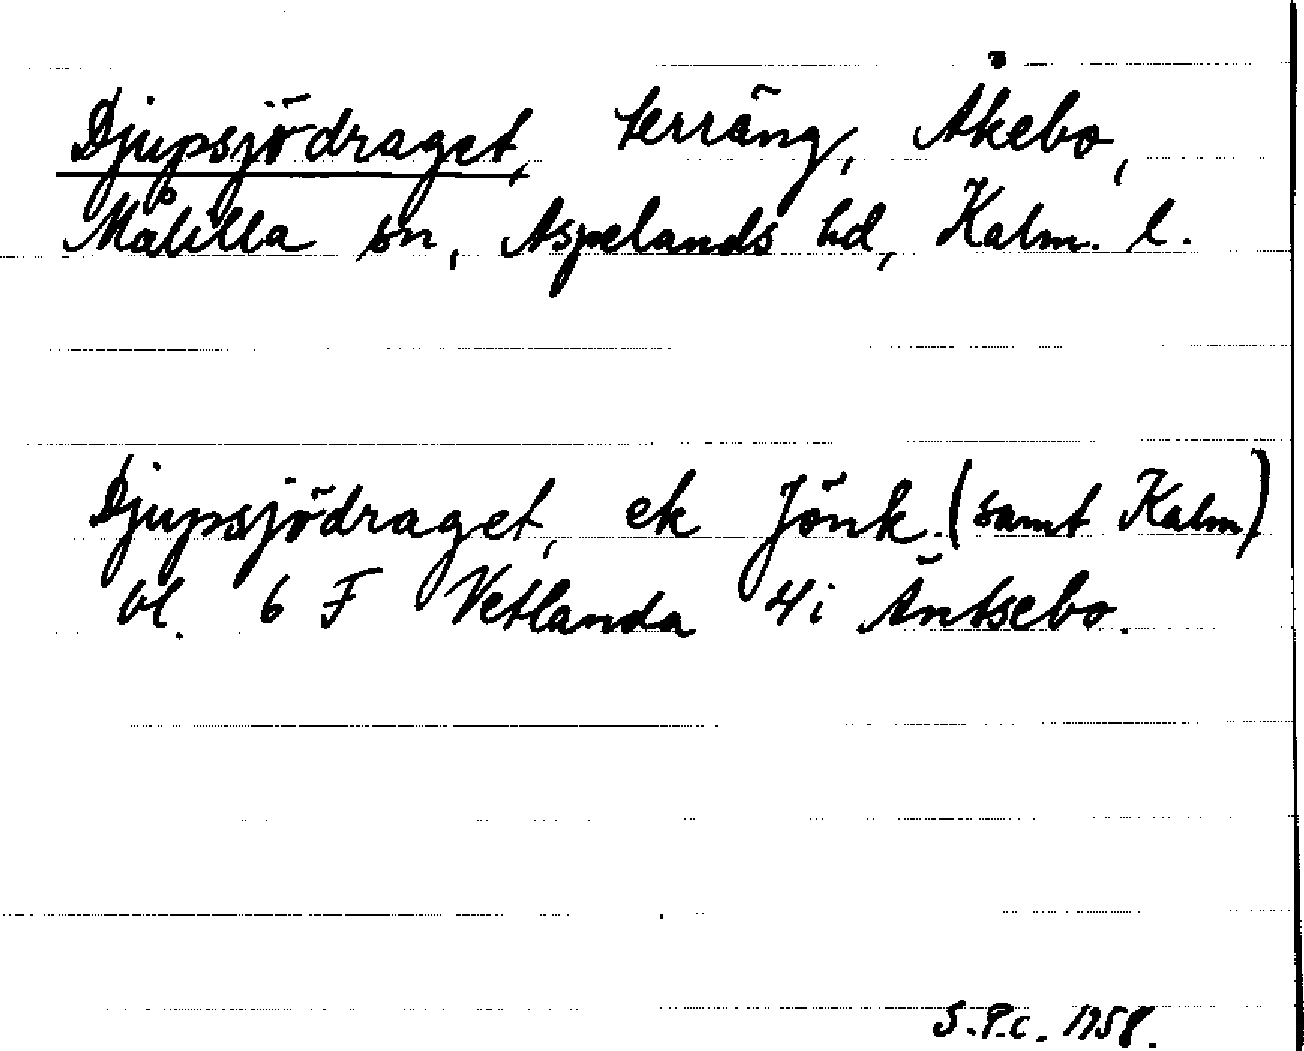 Djupsjödraget, terräng, Åkebo,
Målilla sn, Aspelands hd, Kalm. l.
Djupsjödraget, ek Jönk. (samt Kalm)
bl. 6 F Vetlanda 4i Äntsebo.
S.P.C. 1958.